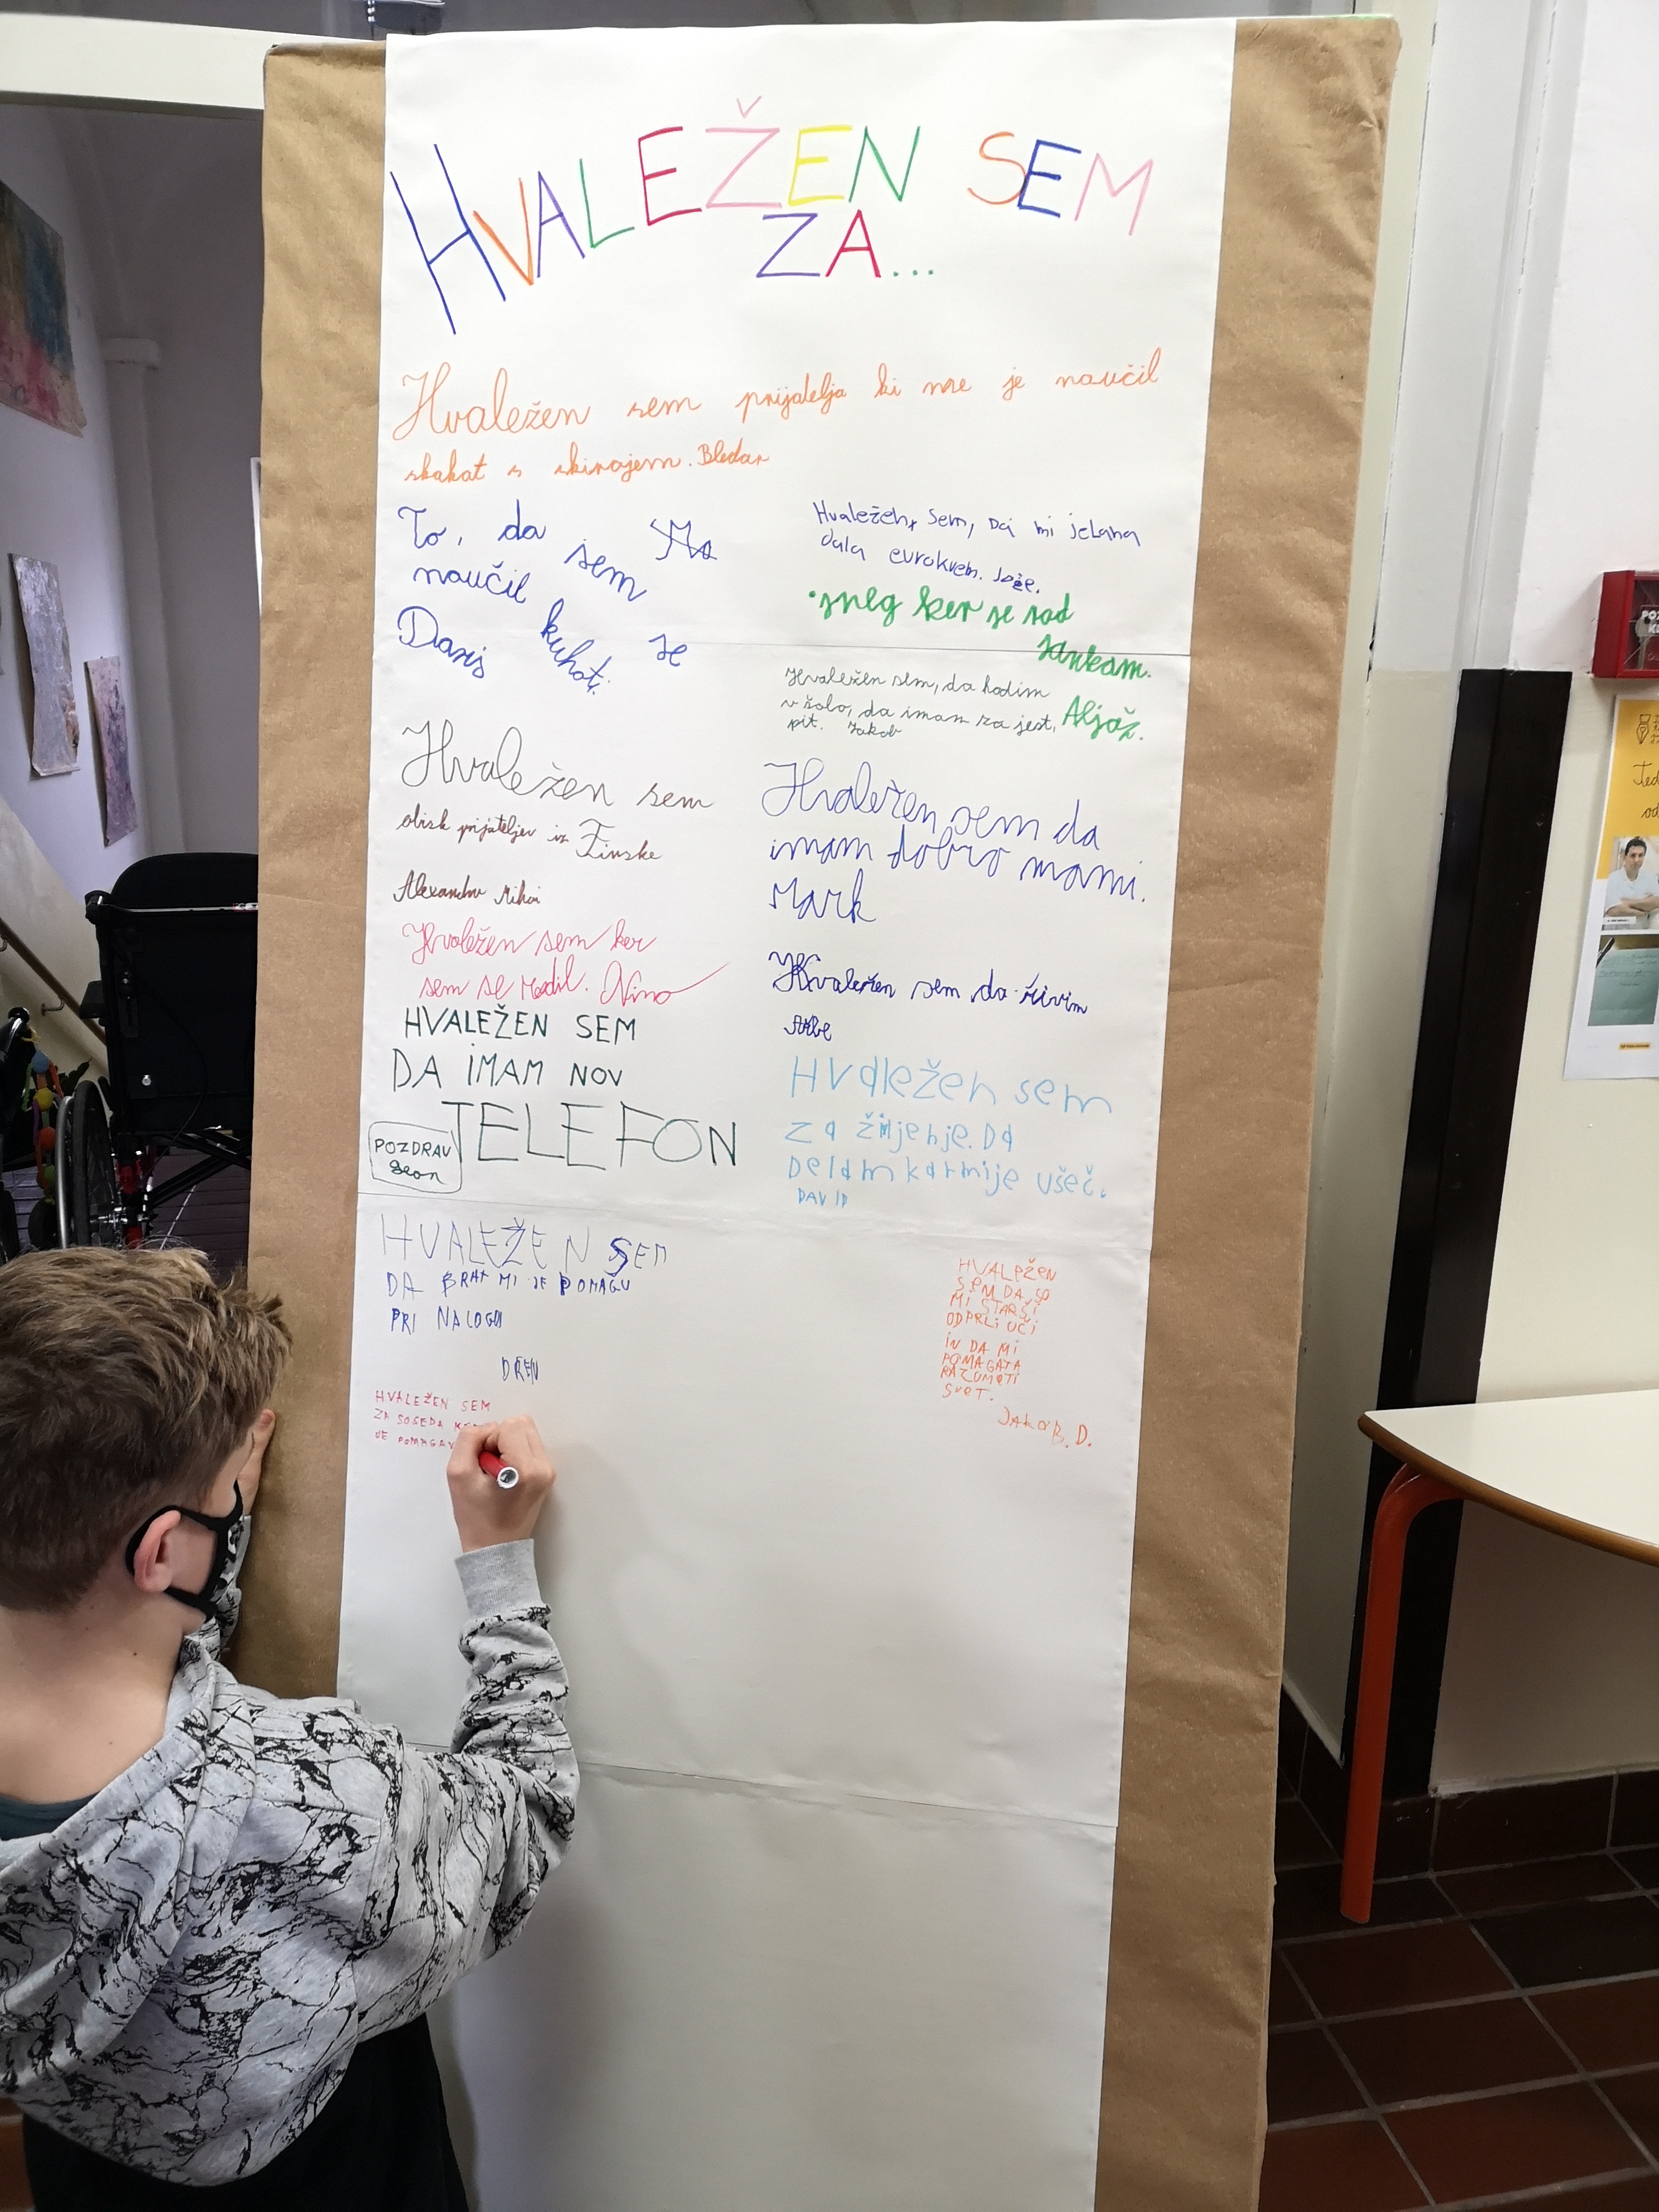 HVALEŽEN SEM
ZA...
Hvaležen sem prijatelja ki me je naučil
skakat s skirojem. Bledar
To, da
sem
naučil
Danis kuhati. se
Hvaležen, sem, Da mi jelana
dala evrokrem. Jože.
•sneg ker se rad
sankam.
Aljaž.
Hvaležen sem, da hodim
v šolo, da imam za jest,
pit. Jakob
Hvaležen sem
obisk prijateljev iz Finske
Alexandru Mihai
Hvaležen sem da
imam dobro mami.
Mark
Hvaležen sem ker
sem se rodil. Nino
Hvaležen sem da živim
HVALEŽEN SEM
DA IMAM NOV
TELEFON
POZDRAV
Hvaležen sem
za življenje. Da
Delam kar mi je ušeč.
DAVID
HVALEŽEN SEM
DA BRAT MI JE POMAGU
PRI NALOGI
DREN
HVALEŽEN
SEM DA SO
MI STARŠI
ODPRLI OČI
IN DA MI
POMAGATA
RAZUMETI
SVET.
JAKOB. D.
HVALEŽEN SEM
ZA SOSEDA
JE POMAGAV